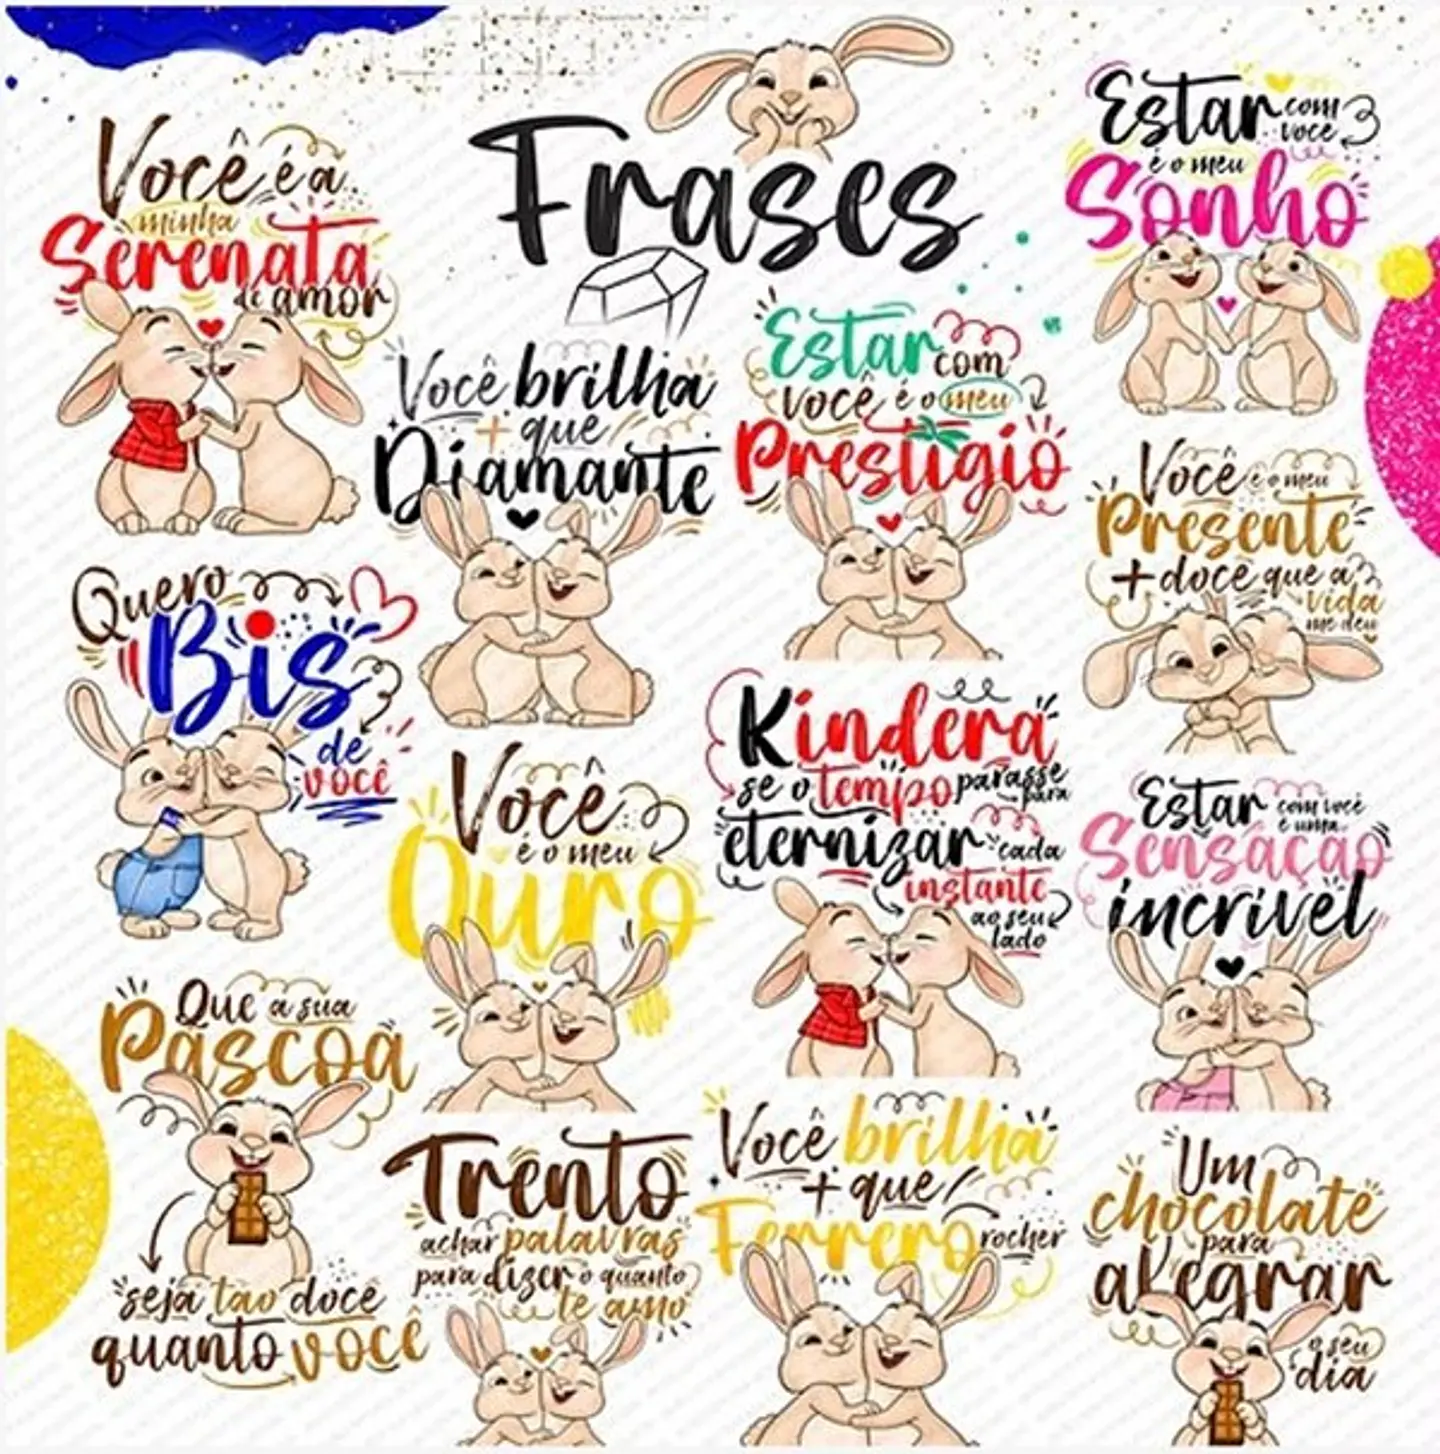 Frases
Você é a
minha
Serenata
de amor
Você brilha
+ que
Diamante
Estar com
você é o meu
Prestigio
Estar com você
é o meu
Sonho
Você é o meu
Presente
+ doce que a
vida
me deu
Quero
Bis
de
você
Você
é o meu
Ouro
Kindera
se o tempo parasse
para
eternizar cada
instante
ao seu
lado
Estar com você
é uma
Sensação
incrivel
Que a sua
Páscoa
seja tao doce
quanto você
Trento
achar palavras
para dizer o quanto
te amo
Você brilha
+ que
Ferrero rocher
Um
chocolate
para
alegrar
o seu
dia